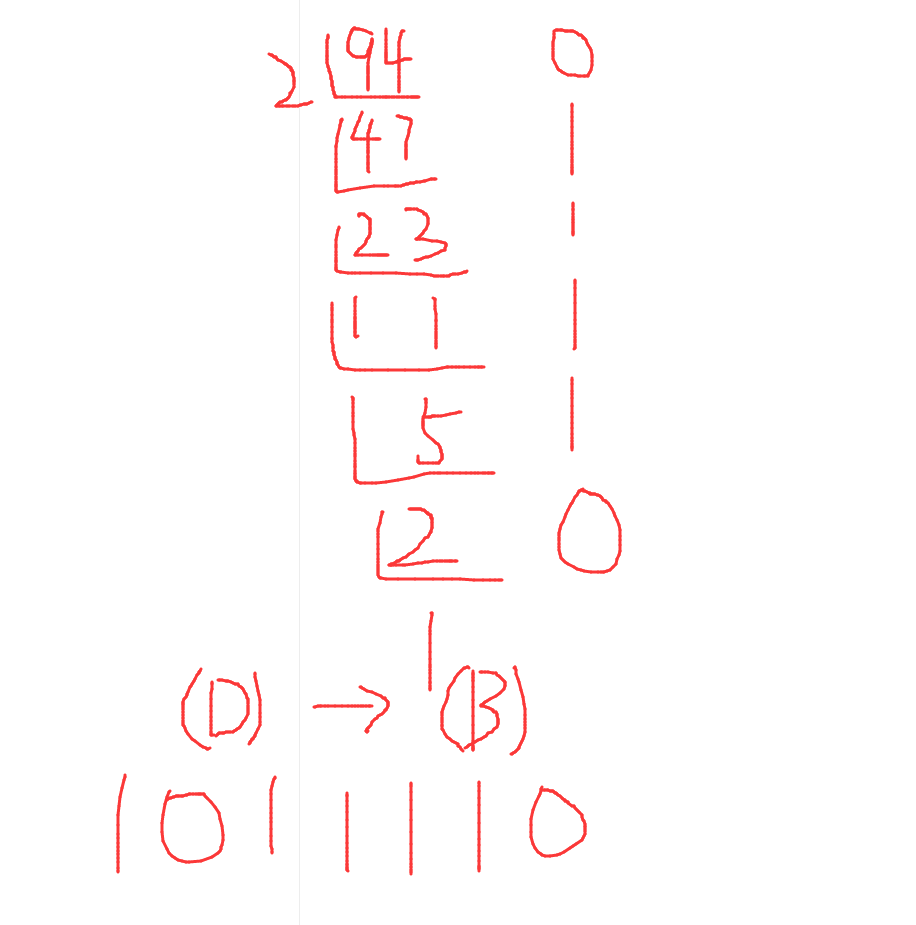 2 94 0
47 1
23 1
11 1
5 1
2 0
1
(D) → (B)
1 0 1 1 1 1 0